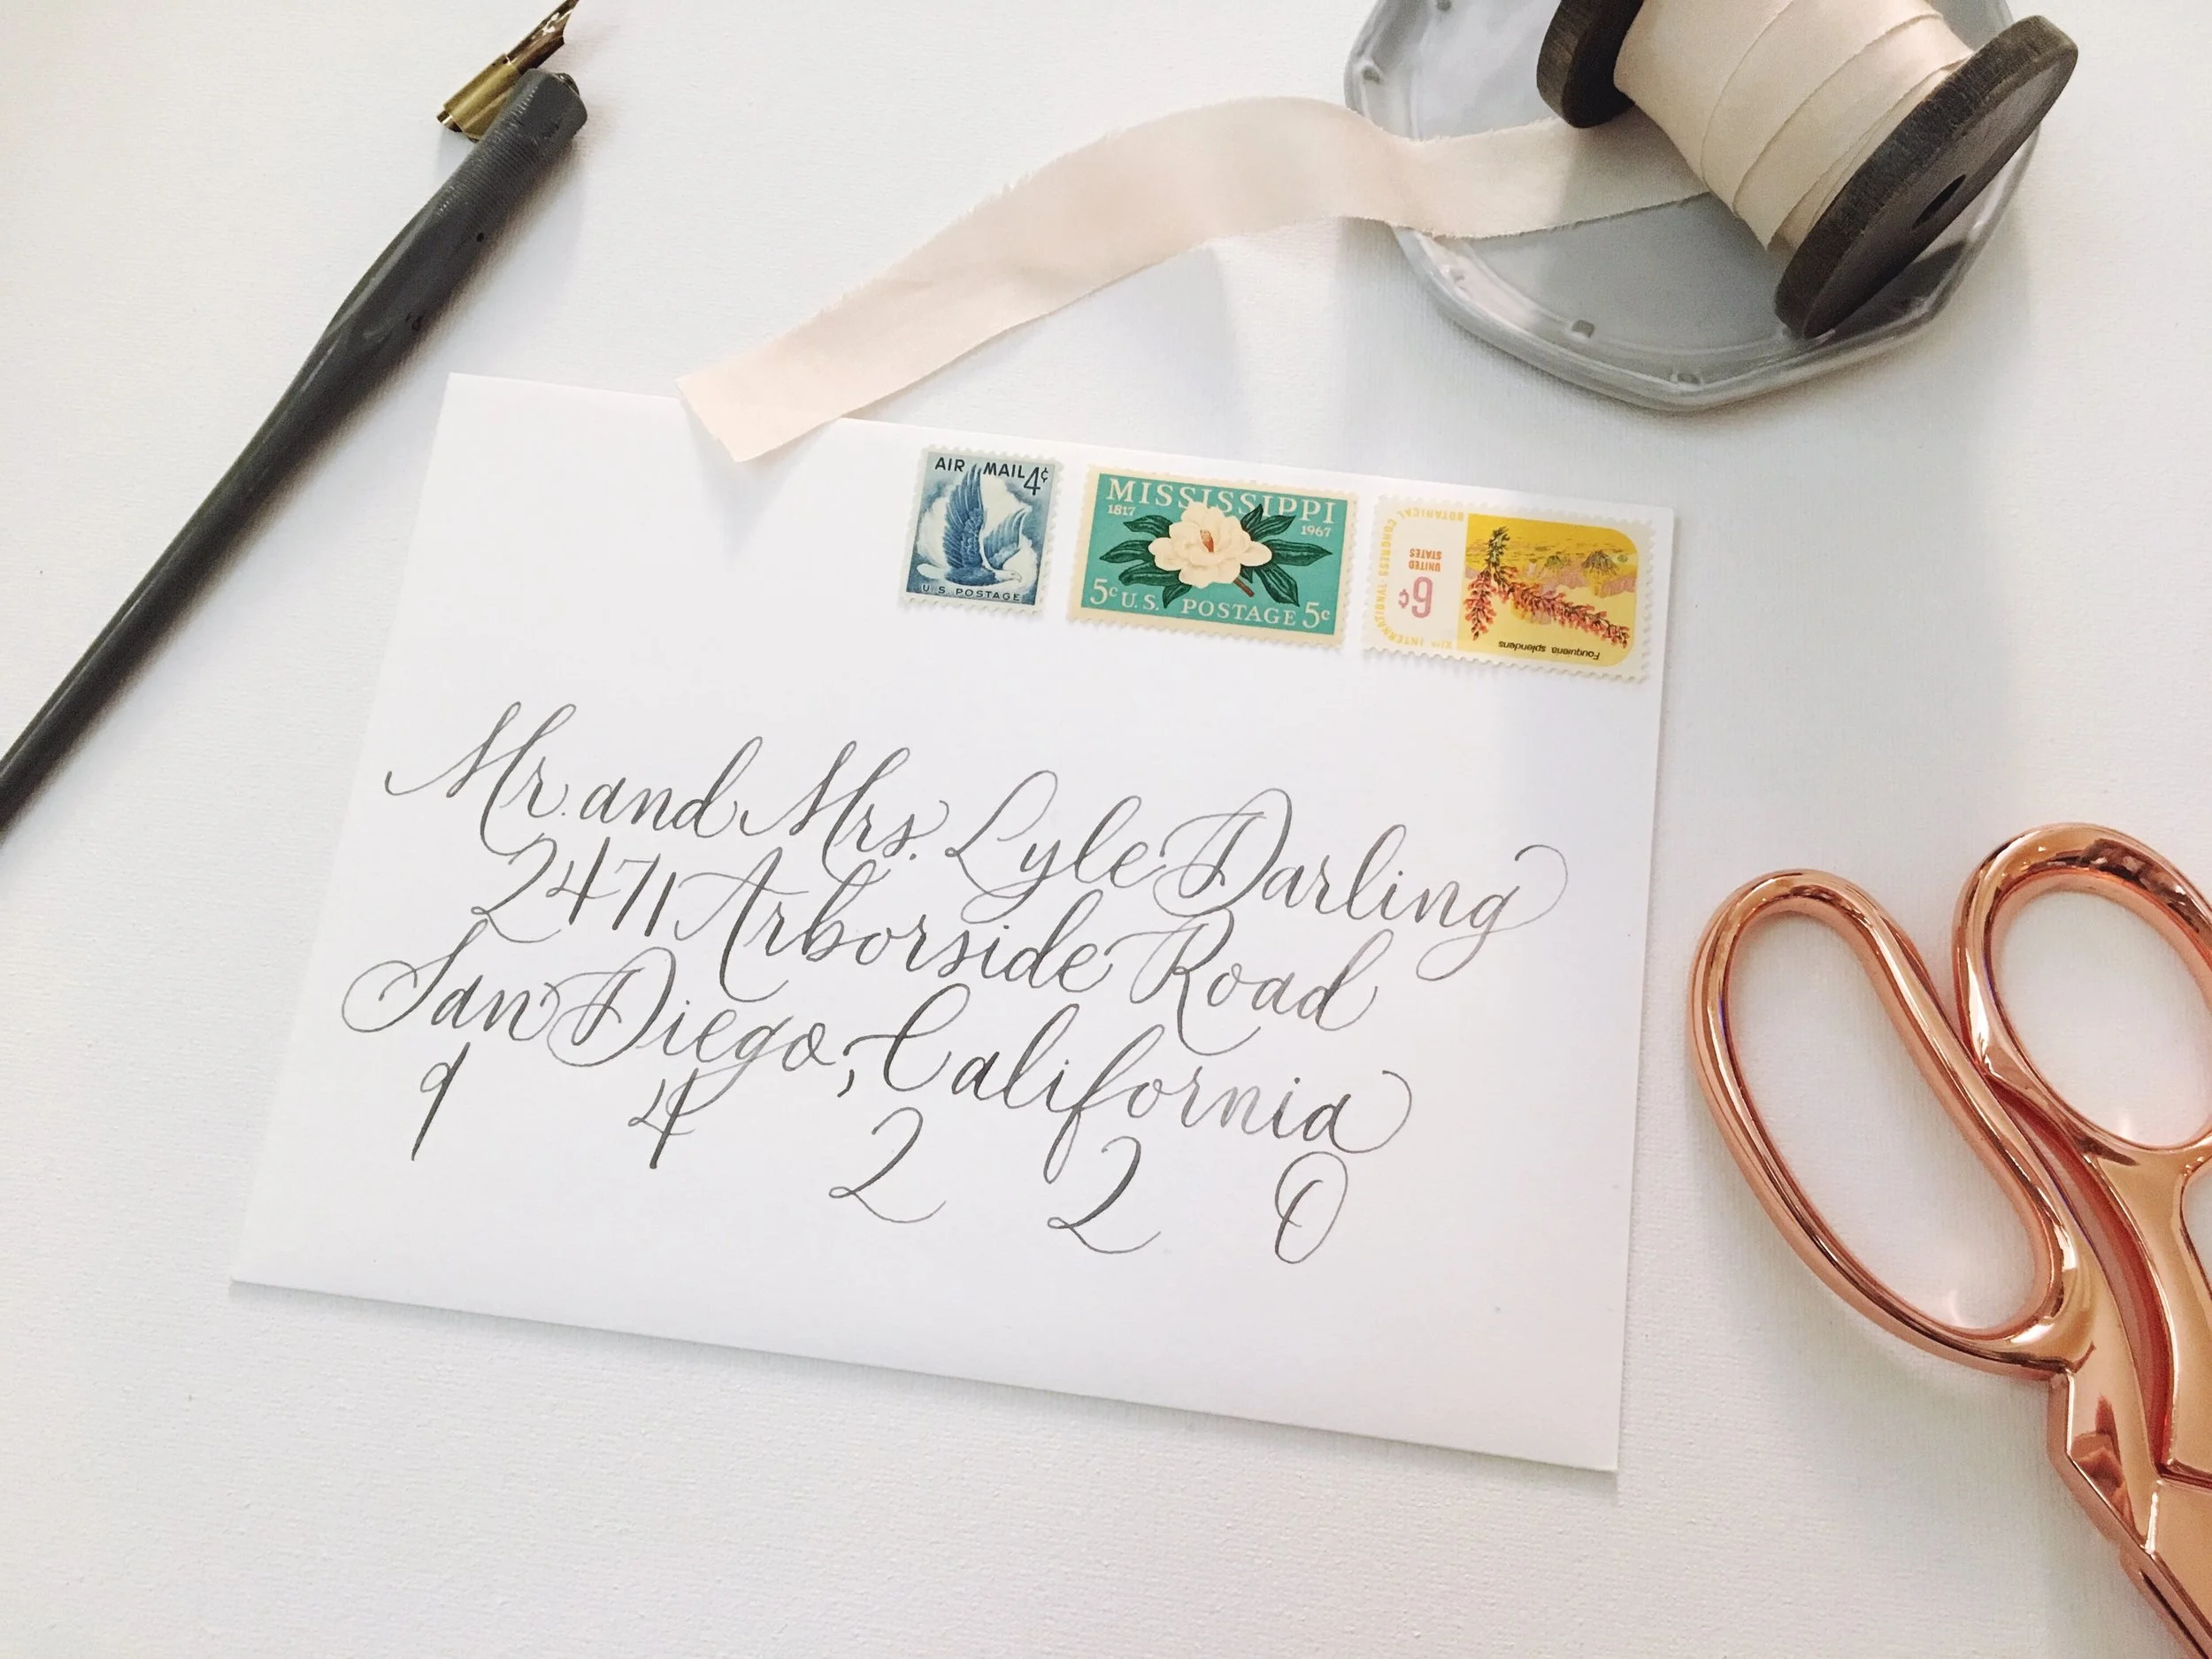 AIR MAIL 4¢
U.S. POSTAGE
MISSISSIPPI
1817 1967
5c U.S. POSTAGE 5c
XITH INTERNATIONAL BOTANICAL CONGRESS
UNITED STATES
6¢
Fouquieria splendens
Mr. and Mrs. Lyle Darling
2471 Arborside Road
San Diego, California
9 4 2 2 0